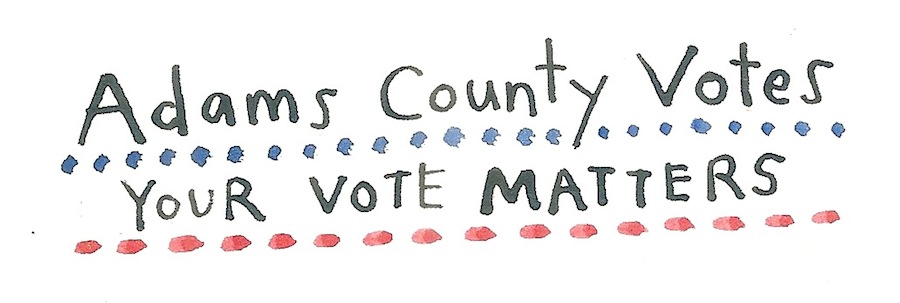 Adams County Votes
YOUR VOTE MATTERS